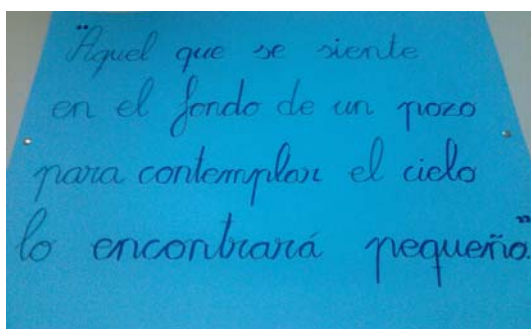 "Aquel que se siente
en el fondo de un pozo
para contemplar el cielo
lo encontrará pequeño."